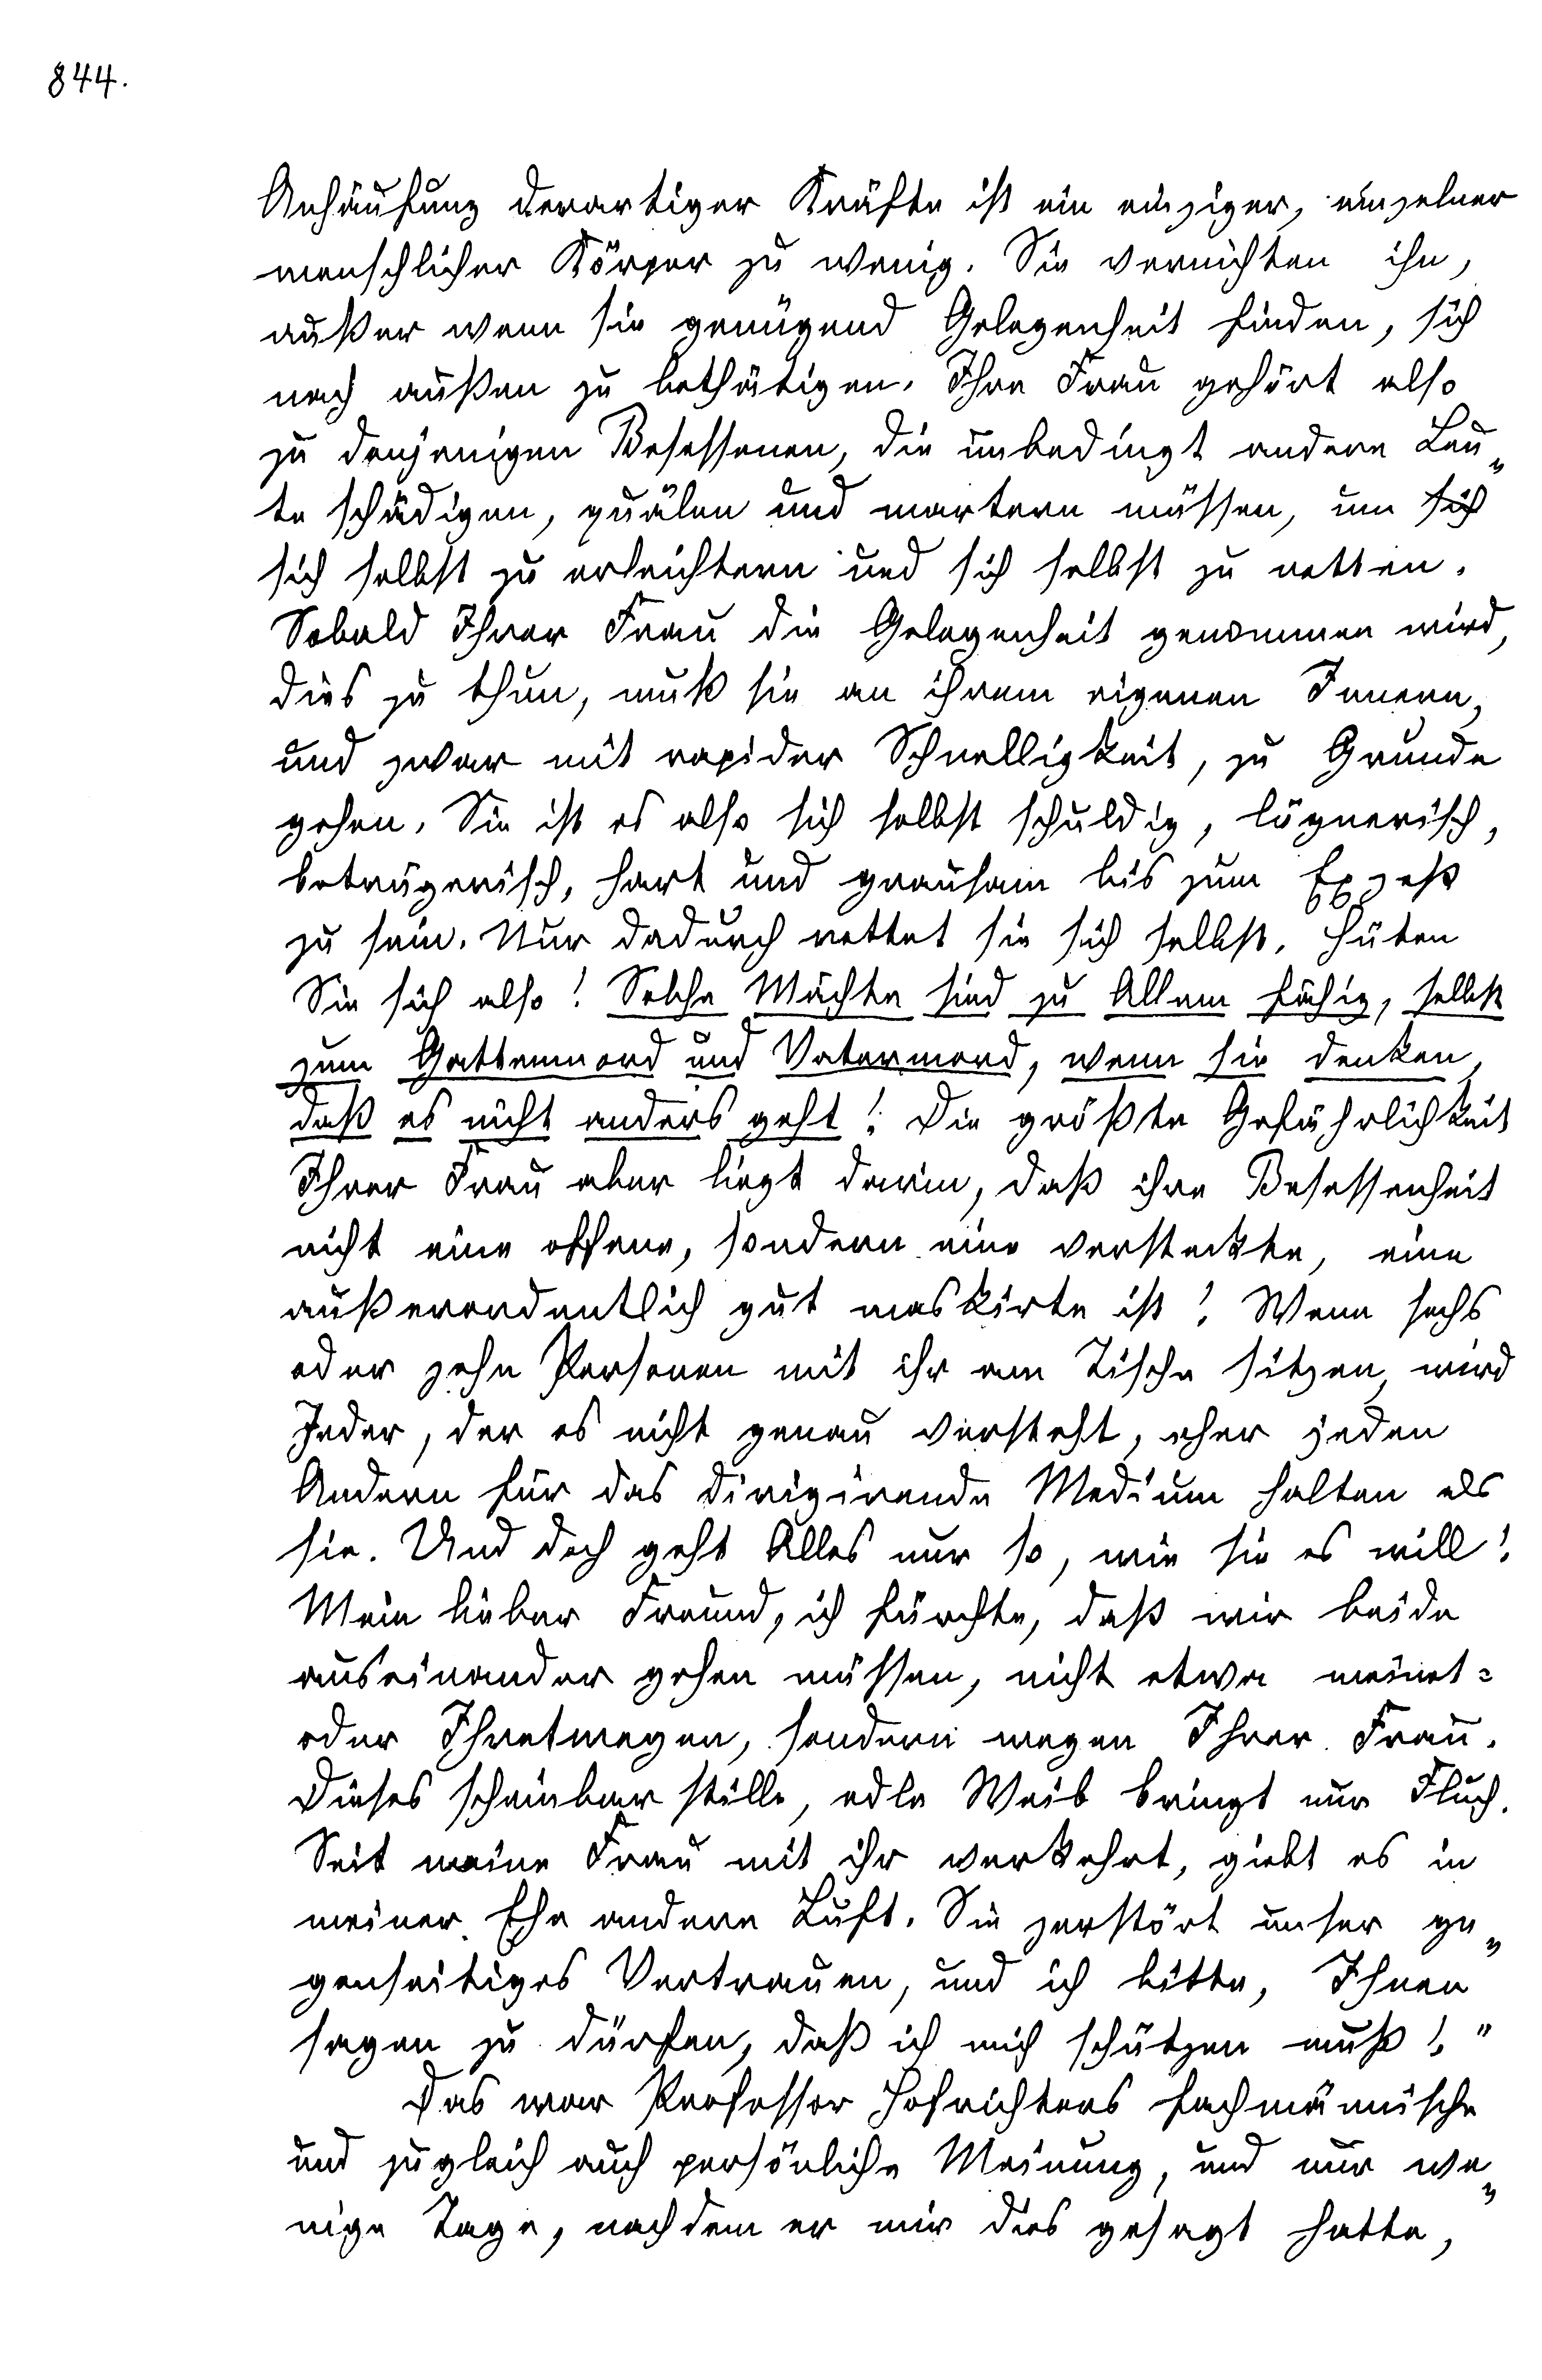 844.
Anhäufung derartiger Kräfte ist ein einziger, einzelner
menschlicher Körper zu wenig. Sie vernichten ihn,
außer wenn sie genügend Gelegenheit finden, sich
nach außen zu bethätigen. Ihre Frau gehört also
zu denjenigen Besessenen, die unbedingt andere Leu„
te schädigen, quälen und martern müssen, um sich
sich selbst zu erleichtern und sich selbst zu retten.
Sobald Ihrer Frau die Gelegenheit genommen wird,
dies zu thun, muß sie an ihrem eigenen Innern,
und zwar mit rapider Schnelligkeit, zu Grunde
gehen. Sie ist es also sich selbst schuldig, lügnerisch,
betrügerisch, hart und grausam bis zum Exzeß
zu sein. Nur dadurch rettet sie sich selbst. Hüten
Sie sich also! Solche Mächte sind zu Allem fähig, selbst
zum Gattenmord und Vatermord, wenn sie denken,
daß es nicht anders geht! Die größte Gefährlichkeit
Ihrer Frau aber liegt darin, daß ihre Besessenheit
nicht eine offene, sondern eine versteckte, eine
außerordentlich gut maskirte ist! Wenn sechs
oder zehn Personen mit ihr am Tische sitzen, wird
Jeder, der es nicht genau versteht, eher jeden
Andern für das dirigirende Medium halten als
sie. Und doch geht Alles nur so, wie sie es will!
Mein lieber Freund, ich fürchte, daß wir beide
auseinander gehen müssen, nicht etwa meinet=
oder Ihretwegen, sondern wegen Ihrer Frau.
Dieses scheinbar stille, edle Weib bringt nur Fluch.
Seit meine Frau mit ihr verkehrt, giebt es in
meiner Ehe andere Luft. Sie zerstört unser ge„
genseitiges Vertrauen, und ich bitte, Ihnen
sagen zu dürfen, daß ich mich schützen muß!"
Das war Professor Hofrichters fachmännische
und zugleich auch persönliche Meinung, und nur we„
nige Tage, nachdem er mir dies gesagt hatte,